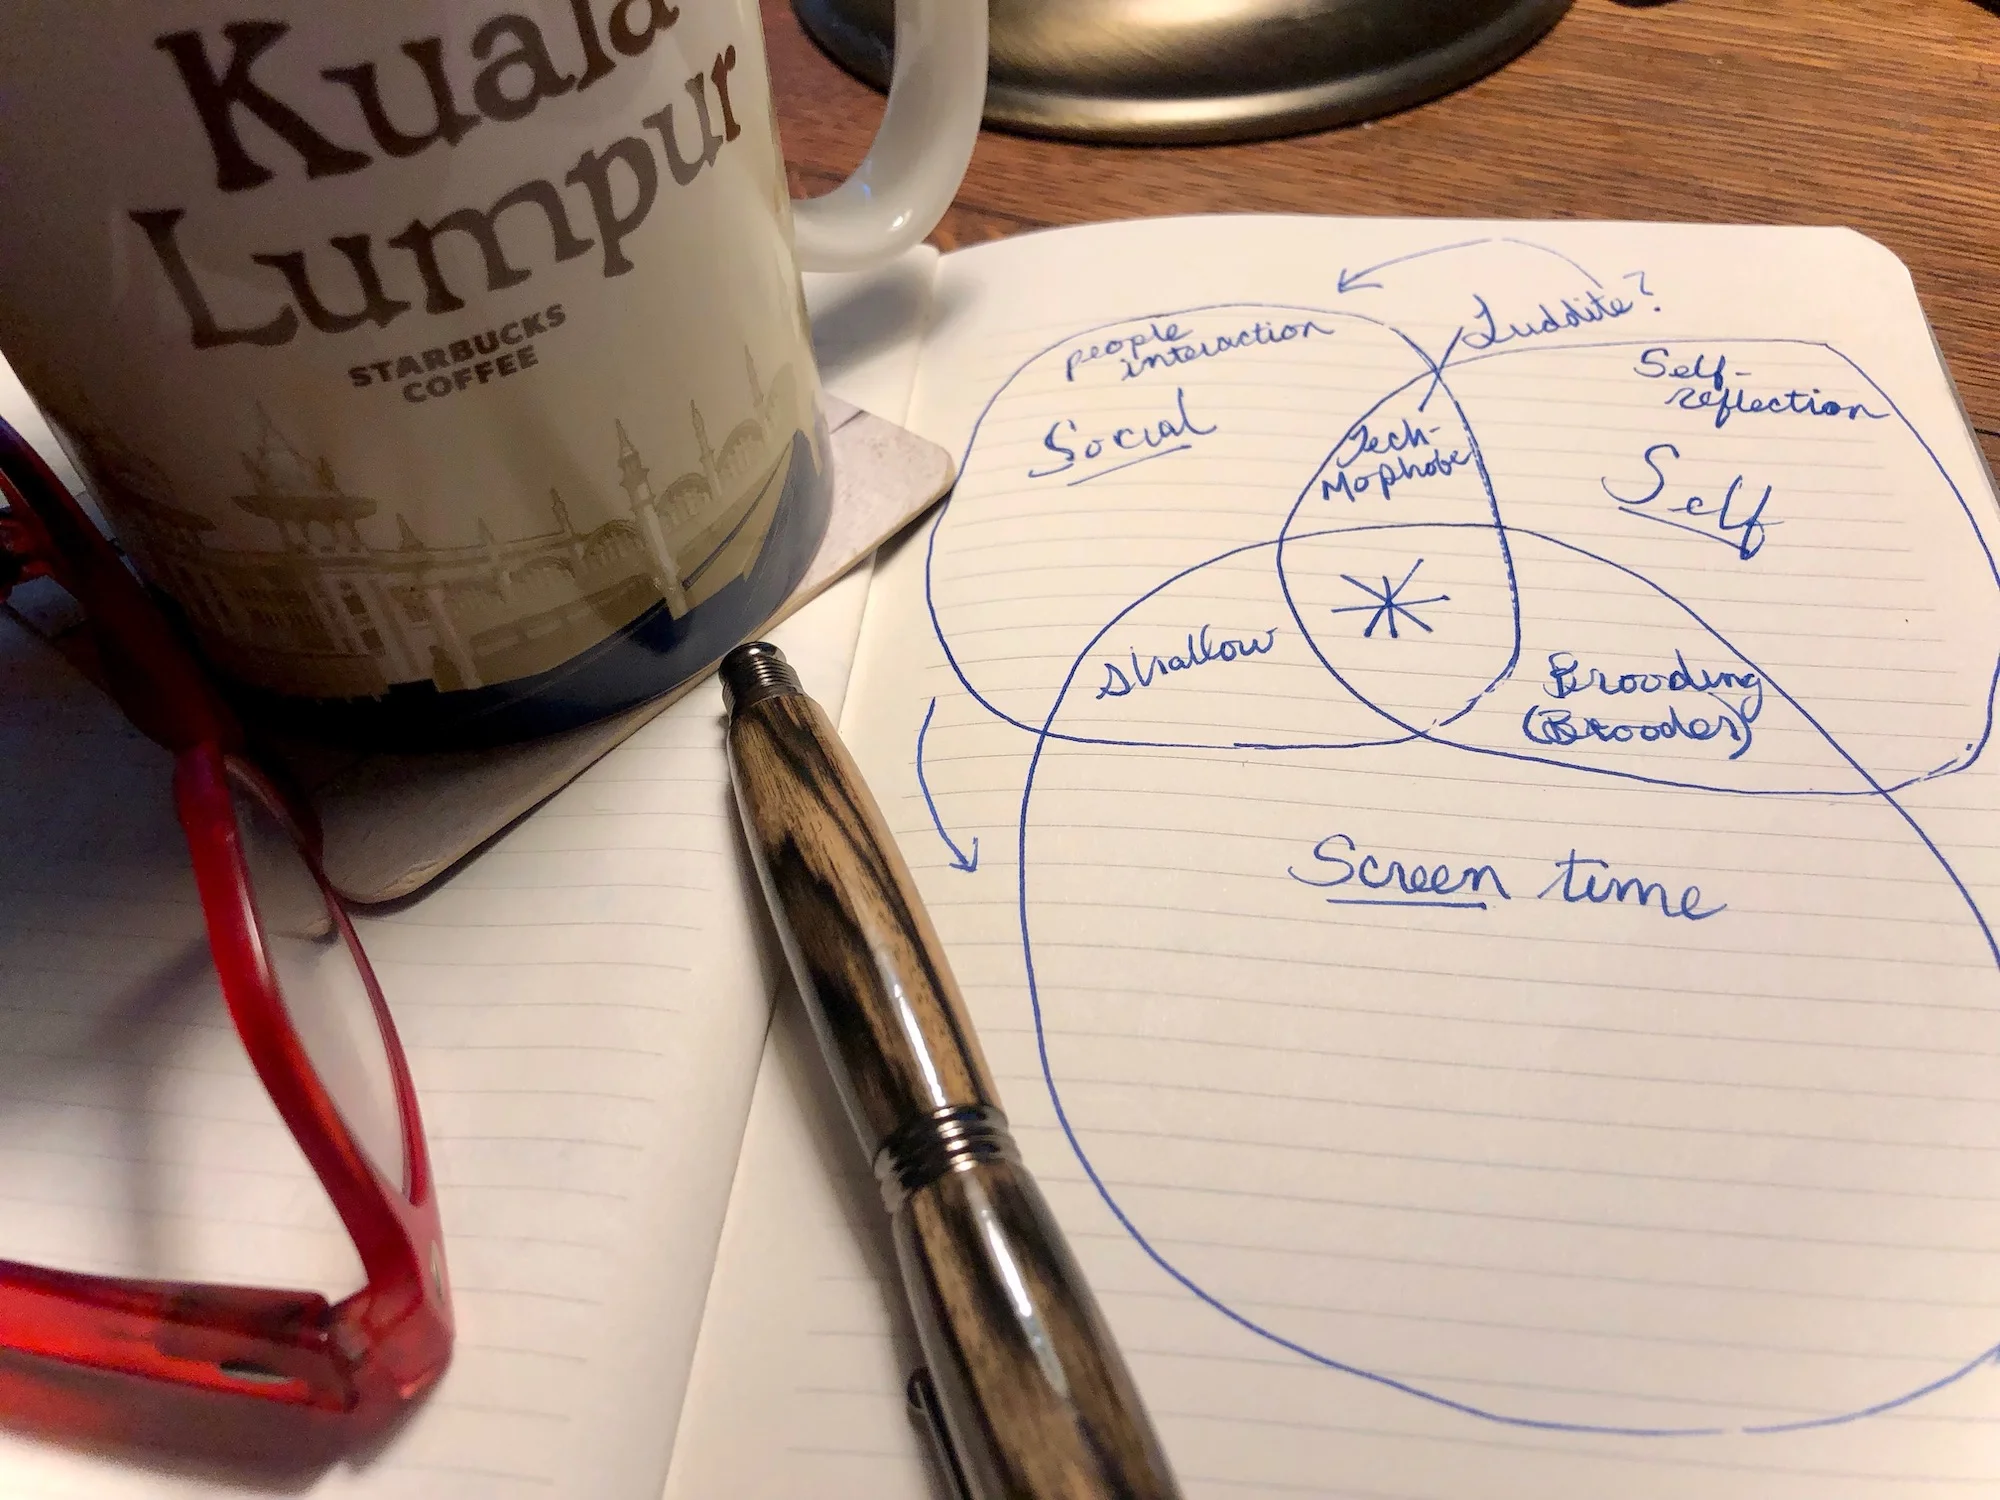 Kuala
Lumpur
STARBUCKS
COFFEE
Luddite?
people
interaction
Social
Self-
reflection
Self
Tech-
Mophobe
shallow
Brooding
(Brooder)
Screen time